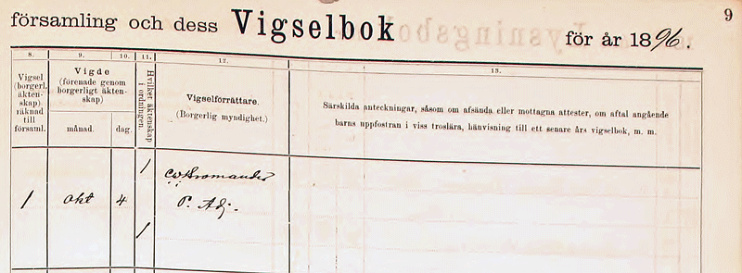 9
församling och dess Vigselbok för år 1896.
8. 9. 10. 11. 12. 13.
Vigsel
(borgerl.
äkten-
skap)
räknad
till
församl.
Vigde
(förenade genom
borgerligt äkten-
skap)
månad. dag.
Hvilket äktenskap
i ordningen.
Vigselförrättare.
(Borgerlig myndighet.)
Särskilda anteckningar, såsom om afsända eller mottagna attester, om aftal angående
barns uppfostran i viss troslära, hänvisning till ett senare års vigselbok, m. m.
1
C W Bromander
1 okt 4 P. Adj.
1